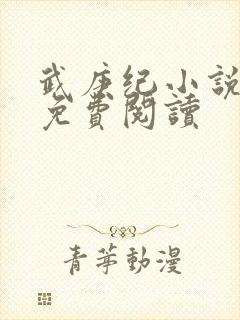 武庚纪小説
免費閱讀
青苹動漫